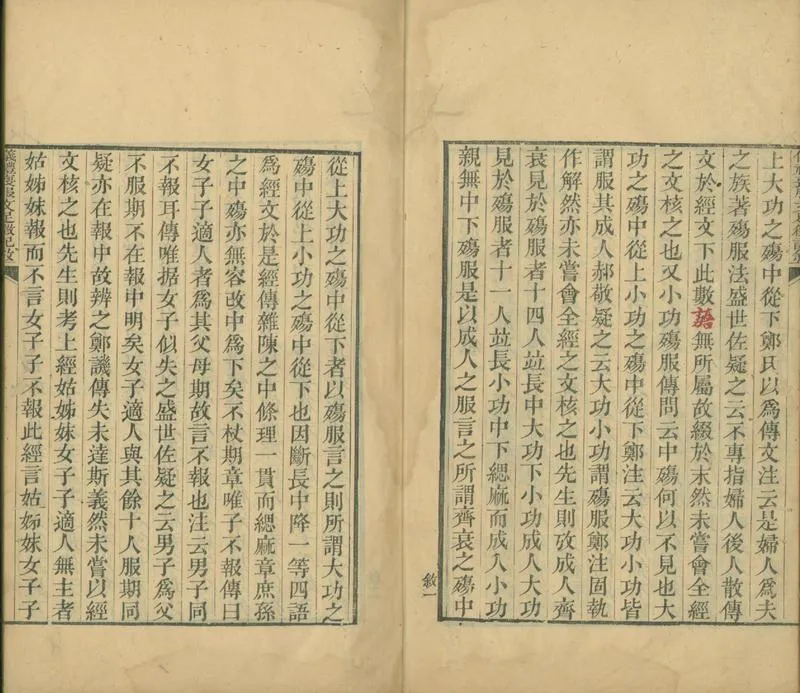 上大功之殤中從下鄭氏以為傳文注云是婦人為夫
之族著殤服法盛世佐疑之云不專指婦人後人散傳
文於經文下此數語無所屬故綴於末然未嘗會全經
之文核之也又小功殤服傳問云中殤何以不見也大
功之殤中從上小功之殤中從下鄭注云大功小功皆
謂服其成人郝敬疑之云大功小功謂殤服鄭注固執
作解然亦未嘗會全經之文核之也先生則攷成人齊
衰見於殤服者十四人竝長中大功下小功成人大功
見於殤服者十一人竝長小功中下緦麻而成人小功
親無中下殤服是以成人之服言之所謂齊衰之殤中
敘一
從上大功之殤中從下者以殤服言之則所謂大功之
殤中從上小功之殤中從下也因斷長中降一等四語
為經文於是經傳雜陳之中條理一貫而緦麻章庶孫
之中殤亦無容改中為下矣不杖期章唯子不報傳曰
女子子適人者為其父母期故言不報也注云男子同
不報耳傳唯据女子似失之盛世佐疑之云男子為父
不服期不在報中明矣女子適人與其餘十人服期同
疑亦在報中故辨之鄭譏傳失未達斯義然未嘗以經
文核之也先生則考上經姑姊妹女子子適人無主者
姑姊妹報而不言女子子不報此經言姑姊妹女子子